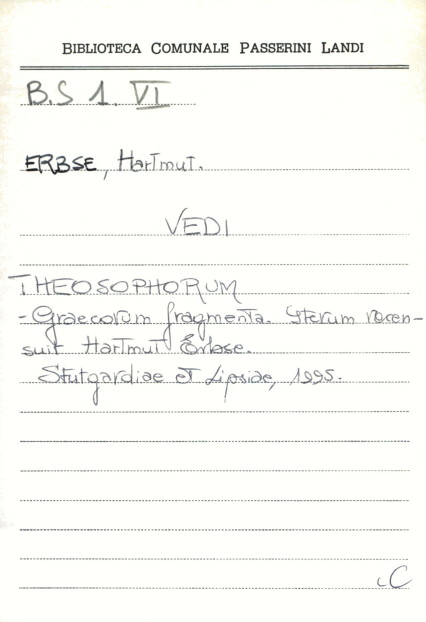 BIBLIOTECA COMUNALE PASSERINI LANDI
B.S 1. VI
ERBSE, Hartmut.
VEDI
THEOSOPHORUM
- Graecorum fragmenta. Iterum recen-
suit Hartmut Erbse.
Stutgardiae et Lipsiae, 1995.
LC